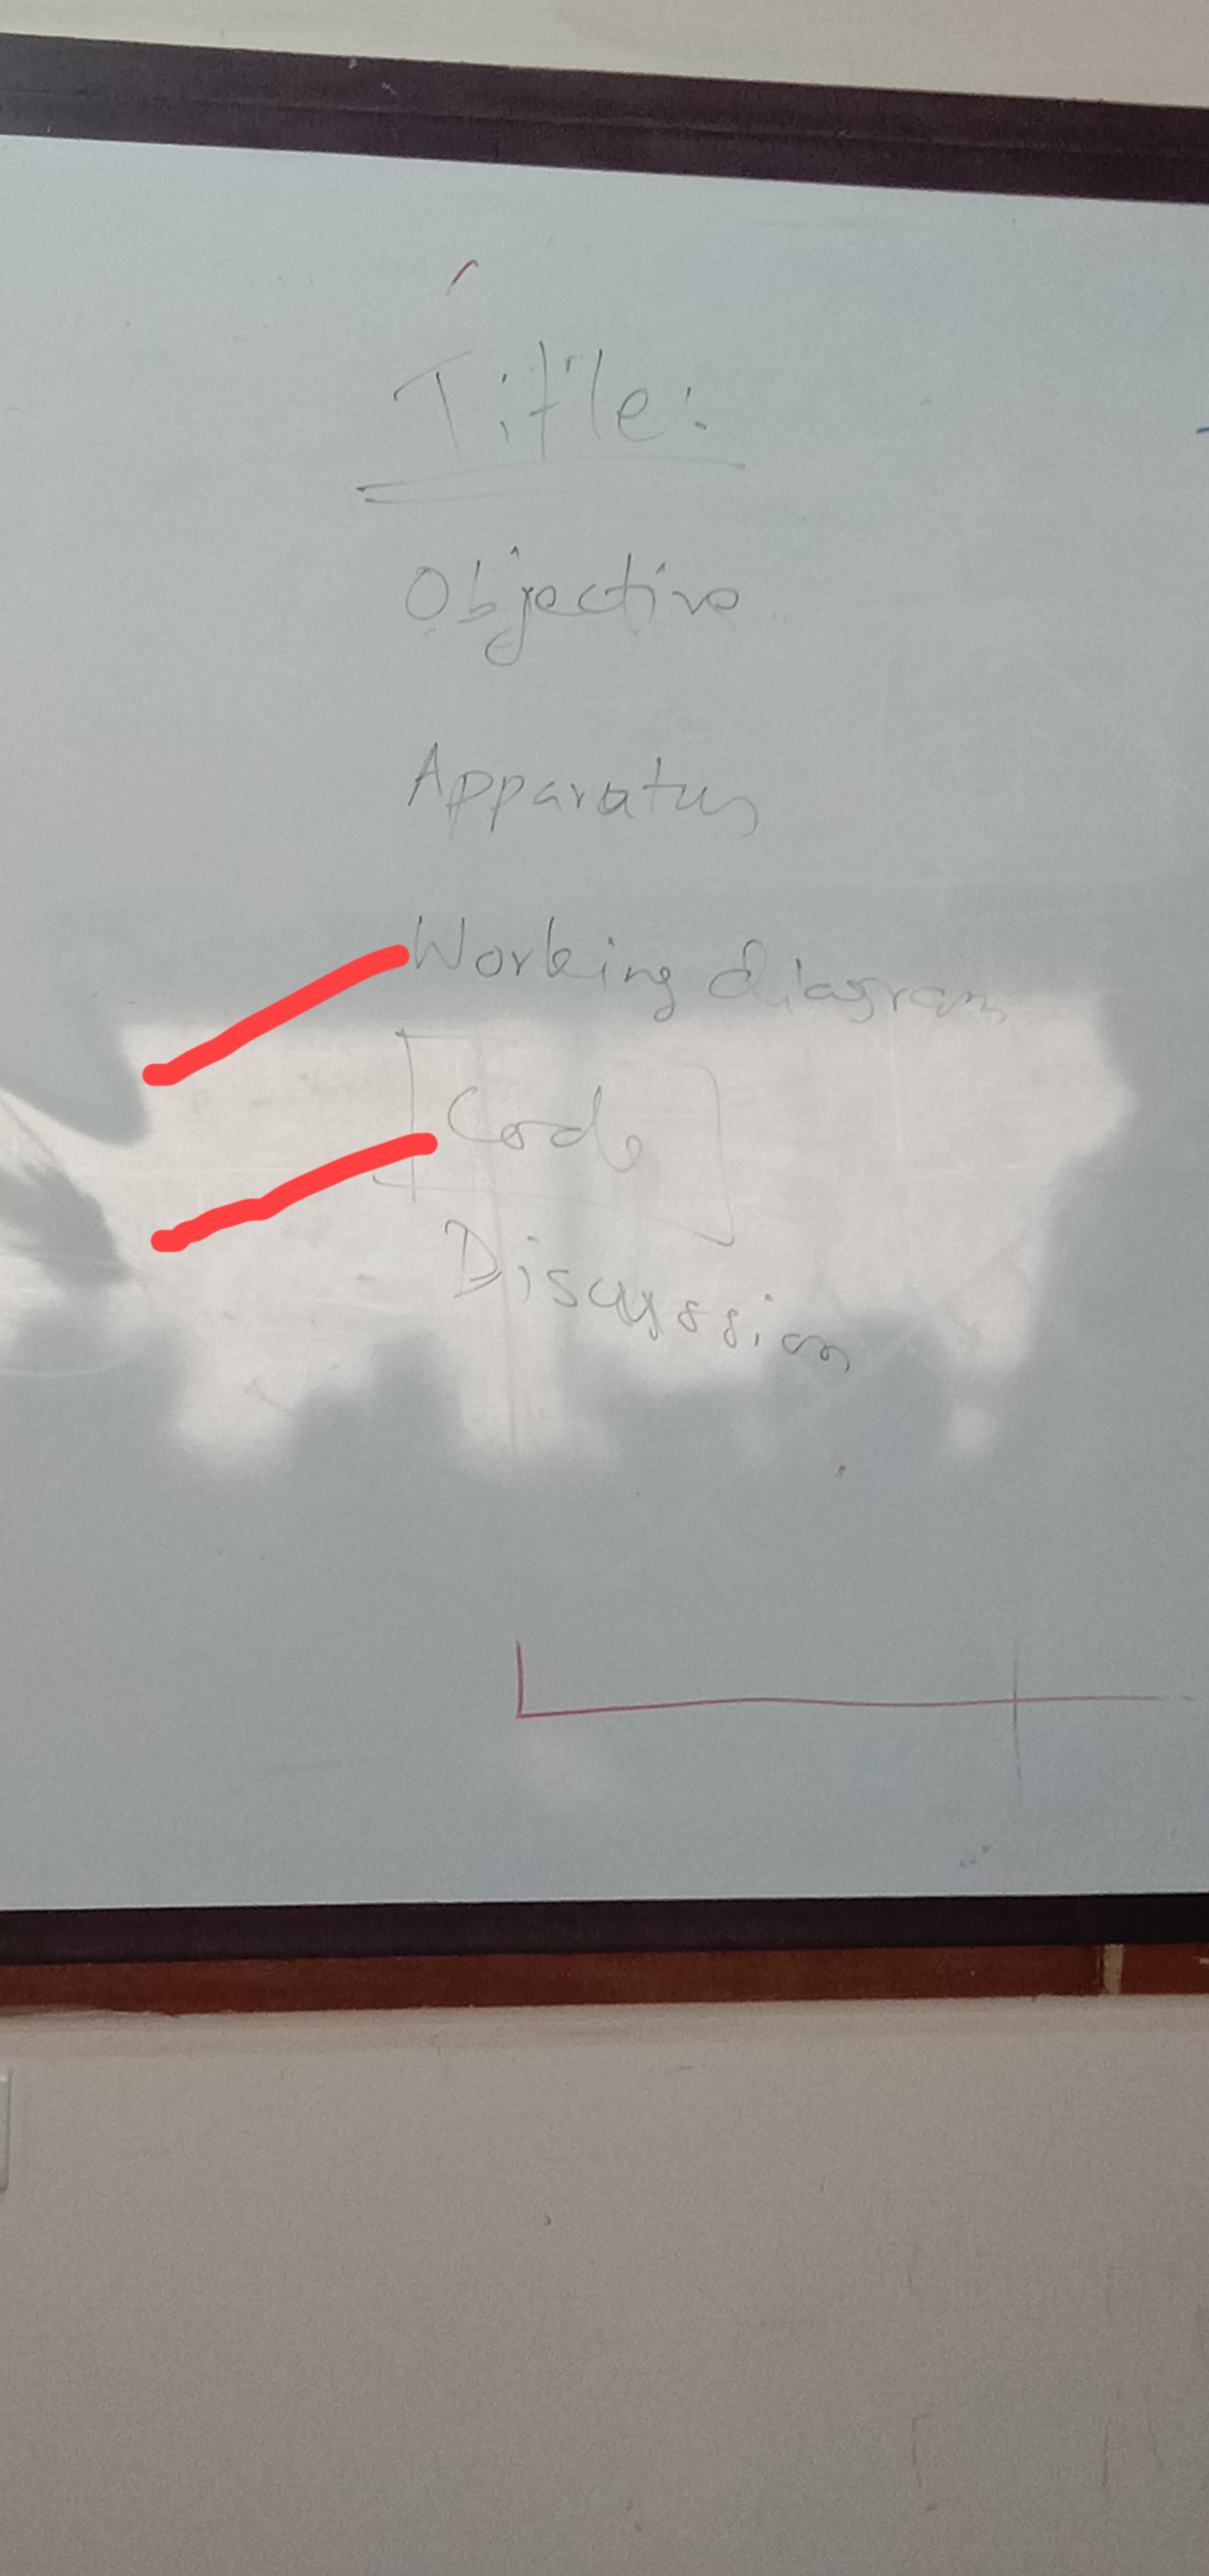 Title:
Objective
Apparatus
Working diagram
Code
Discussion